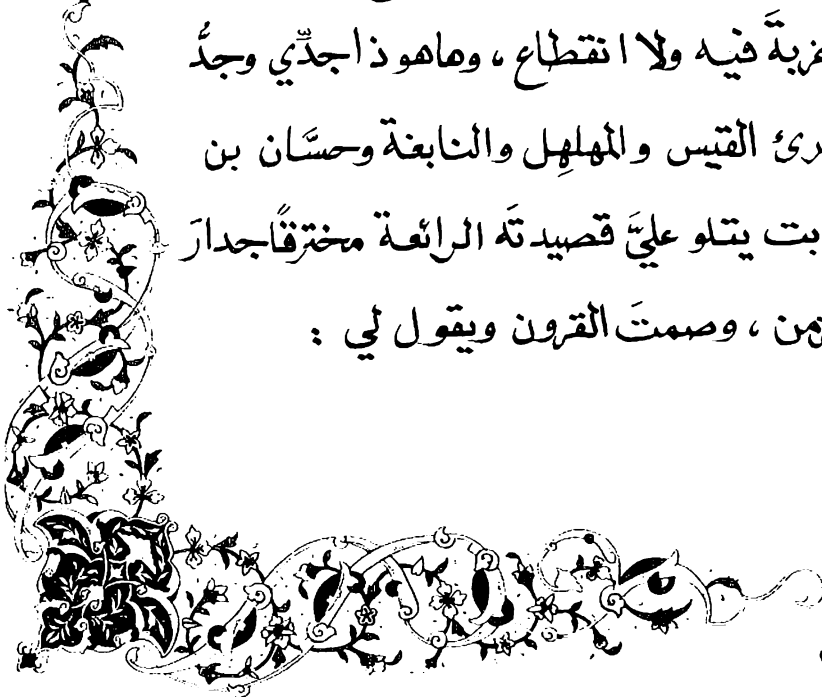 غربةَ فيه ولا انقطاع ، وهاهو ذا جدِّي وجدُّ
رئ القيس والمهلهِل والنابغة وحسَّان بن
بت يتلو عليَّ قصيدتَه الرائعة مخترقًا جدارَ
زمن ، وصمتَ القرون ويقول لي :